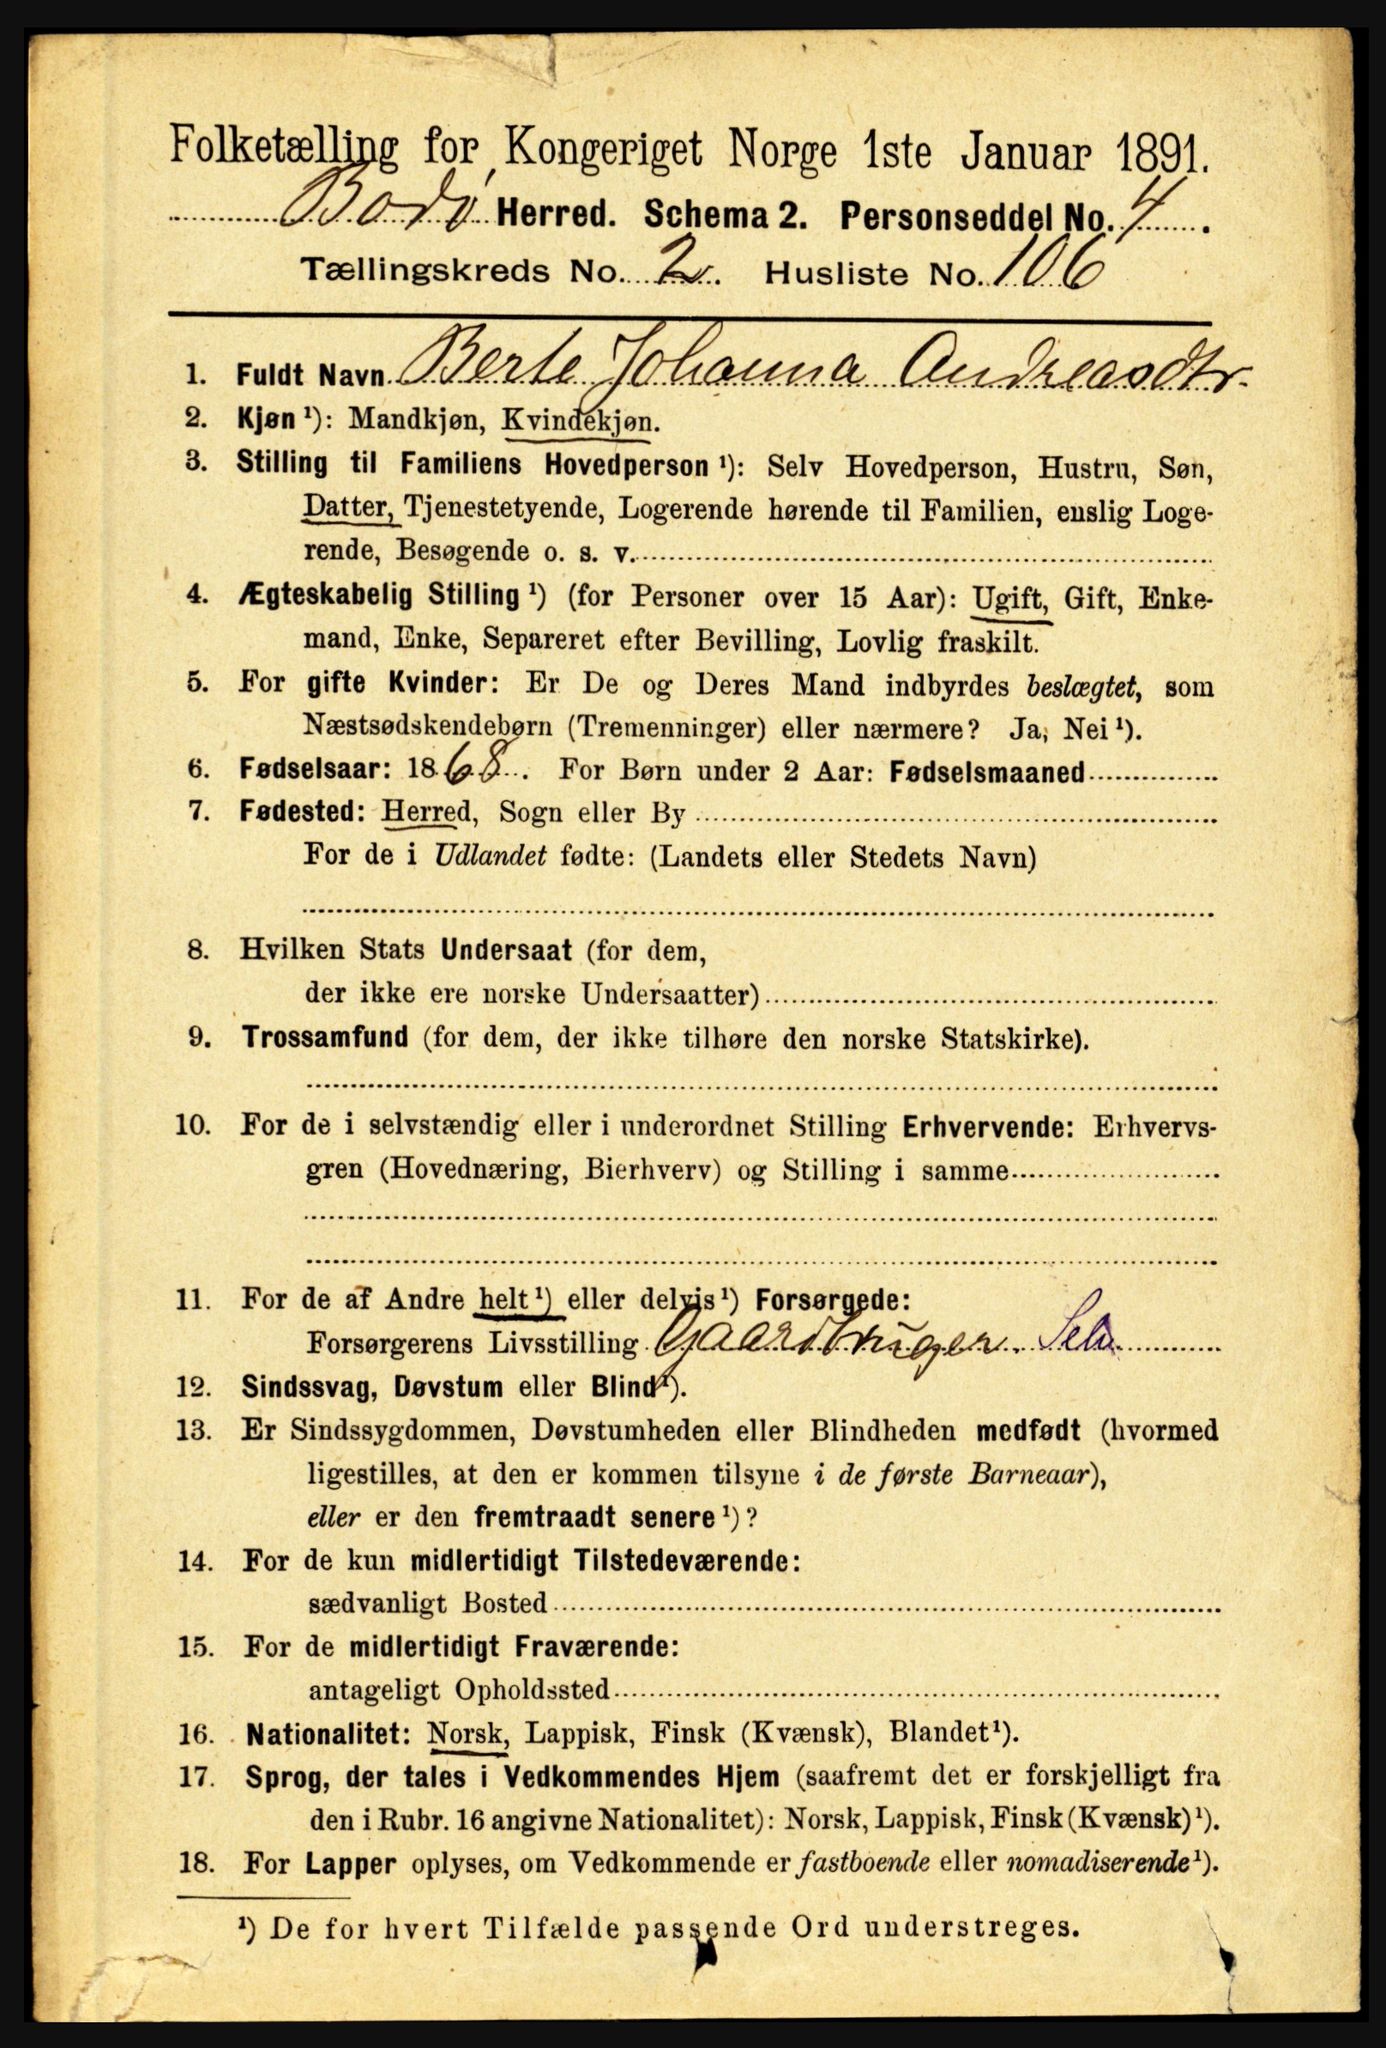 Folketælling for Kongeriget Norge 1ste Januar 1891.
Bodø Herred. Schema 2. Personseddel No. 4.
Tællingskreds No. 2. Husliste No. 106
1. Fuldt Navn Berte Johanna Andreasdtr.
2. Kjøn ¹): Mandkjøn, Kvindekjøn.
3. Stilling til Familiens Hovedperson ¹): Selv Hovedperson, Hustru, Søn,
Datter, Tjenestetyende, Logerende hørende til Familien, enslig Loge-
rende, Besøgende o. s. v.
4. Ægteskabelig Stilling ¹) (for Personer over 15 Aar): Ugift, Gift, Enke-
mand, Enke, Separeret efter Bevilling, Lovlig fraskilt.
5. For gifte Kvinder: Er De og Deres Mand indbyrdes beslægtet, som
Næstsødskendebørn (Tremenninger) eller nærmere? Ja, Nei ¹).
6. Fødselsaar: 1868. For Børn under 2 Aar: Fødselsmaaned
7. Fødested: Herred, Sogn eller By
For de i Udlandet fødte: (Landets eller Stedets Navn)
8. Hvilken Stats Undersaat (for dem,
der ikke ere norske Undersaatter)
9. Trossamfund (for dem, der ikke tilhøre den norske Statskirke).
10. For de i selvstændig eller i underordnet Stilling Erhvervende: Erhvervs-
gren (Hovednæring, Bierhverv) og Stilling i samme
11. For de af Andre helt ¹) eller delvis ¹) Forsørgede:
Forsørgerens Livsstilling Gaardbruger. Selv
12. Sindssvag, Døvstum eller Blind ¹).
13. Er Sindssygdommen, Døvstumheden eller Blindheden medfødt (hvormed
ligestilles, at den er kommen tilsyne i de første Barneaar),
eller er den fremtraadt senere ¹)?
14. For de kun midlertidigt Tilstedeværende:
sædvanligt Bosted
15. For de midlertidigt Fraværende:
antageligt Opholdssted
16. Nationalitet: Norsk, Lappisk, Finsk (Kvænsk), Blandet ¹).
17. Sprog, der tales i Vedkommendes Hjem (saafremt det er forskjelligt fra
den i Rubr. 16 angivne Nationalitet): Norsk, Lappisk, Finsk (Kvænsk) ¹).
18. For Lapper oplyses, om Vedkommende er fastboende eller nomadiserende ¹).
¹) De for hvert Tilfælde passende Ord understreges.